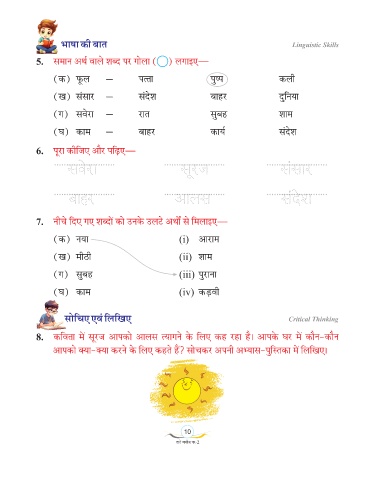 भाषा की बात
Linguistic Skills
5. समान अर्थ वाले शब्द पर गोला ( ) लगाइए—
(क) फूल — पत्ता पुष्प कली
(ख) संसार — संदेश बाहर दुनिया
(ग) सवेरा — रात सुबह शाम
(घ) काम — बाहर कार्य संदेश
6. पूरा कीजिए और पढ़िए—
सवेरा सूरज संसार
बाहर आलस संदेश
7. नीचे दिए गए शब्दों को उनके उलटे अर्थों से मिलाइए—
(क) नया (i) आराम
(ख) मीठी (ii) शाम
(ग) सुबह (iii) पुराना
(घ) काम (iv) कड़वी
सोचिए एवं लिखिए
Critical Thinking
8. कविता में सूरज आपको आलस त्यागने के लिए कह रहा है। आपके घर में कौन-कौन
आपको क्या-क्या करने के लिए कहते हैं? सोचकर अपनी अभ्यास-पुस्तिका में लिखिए।
10